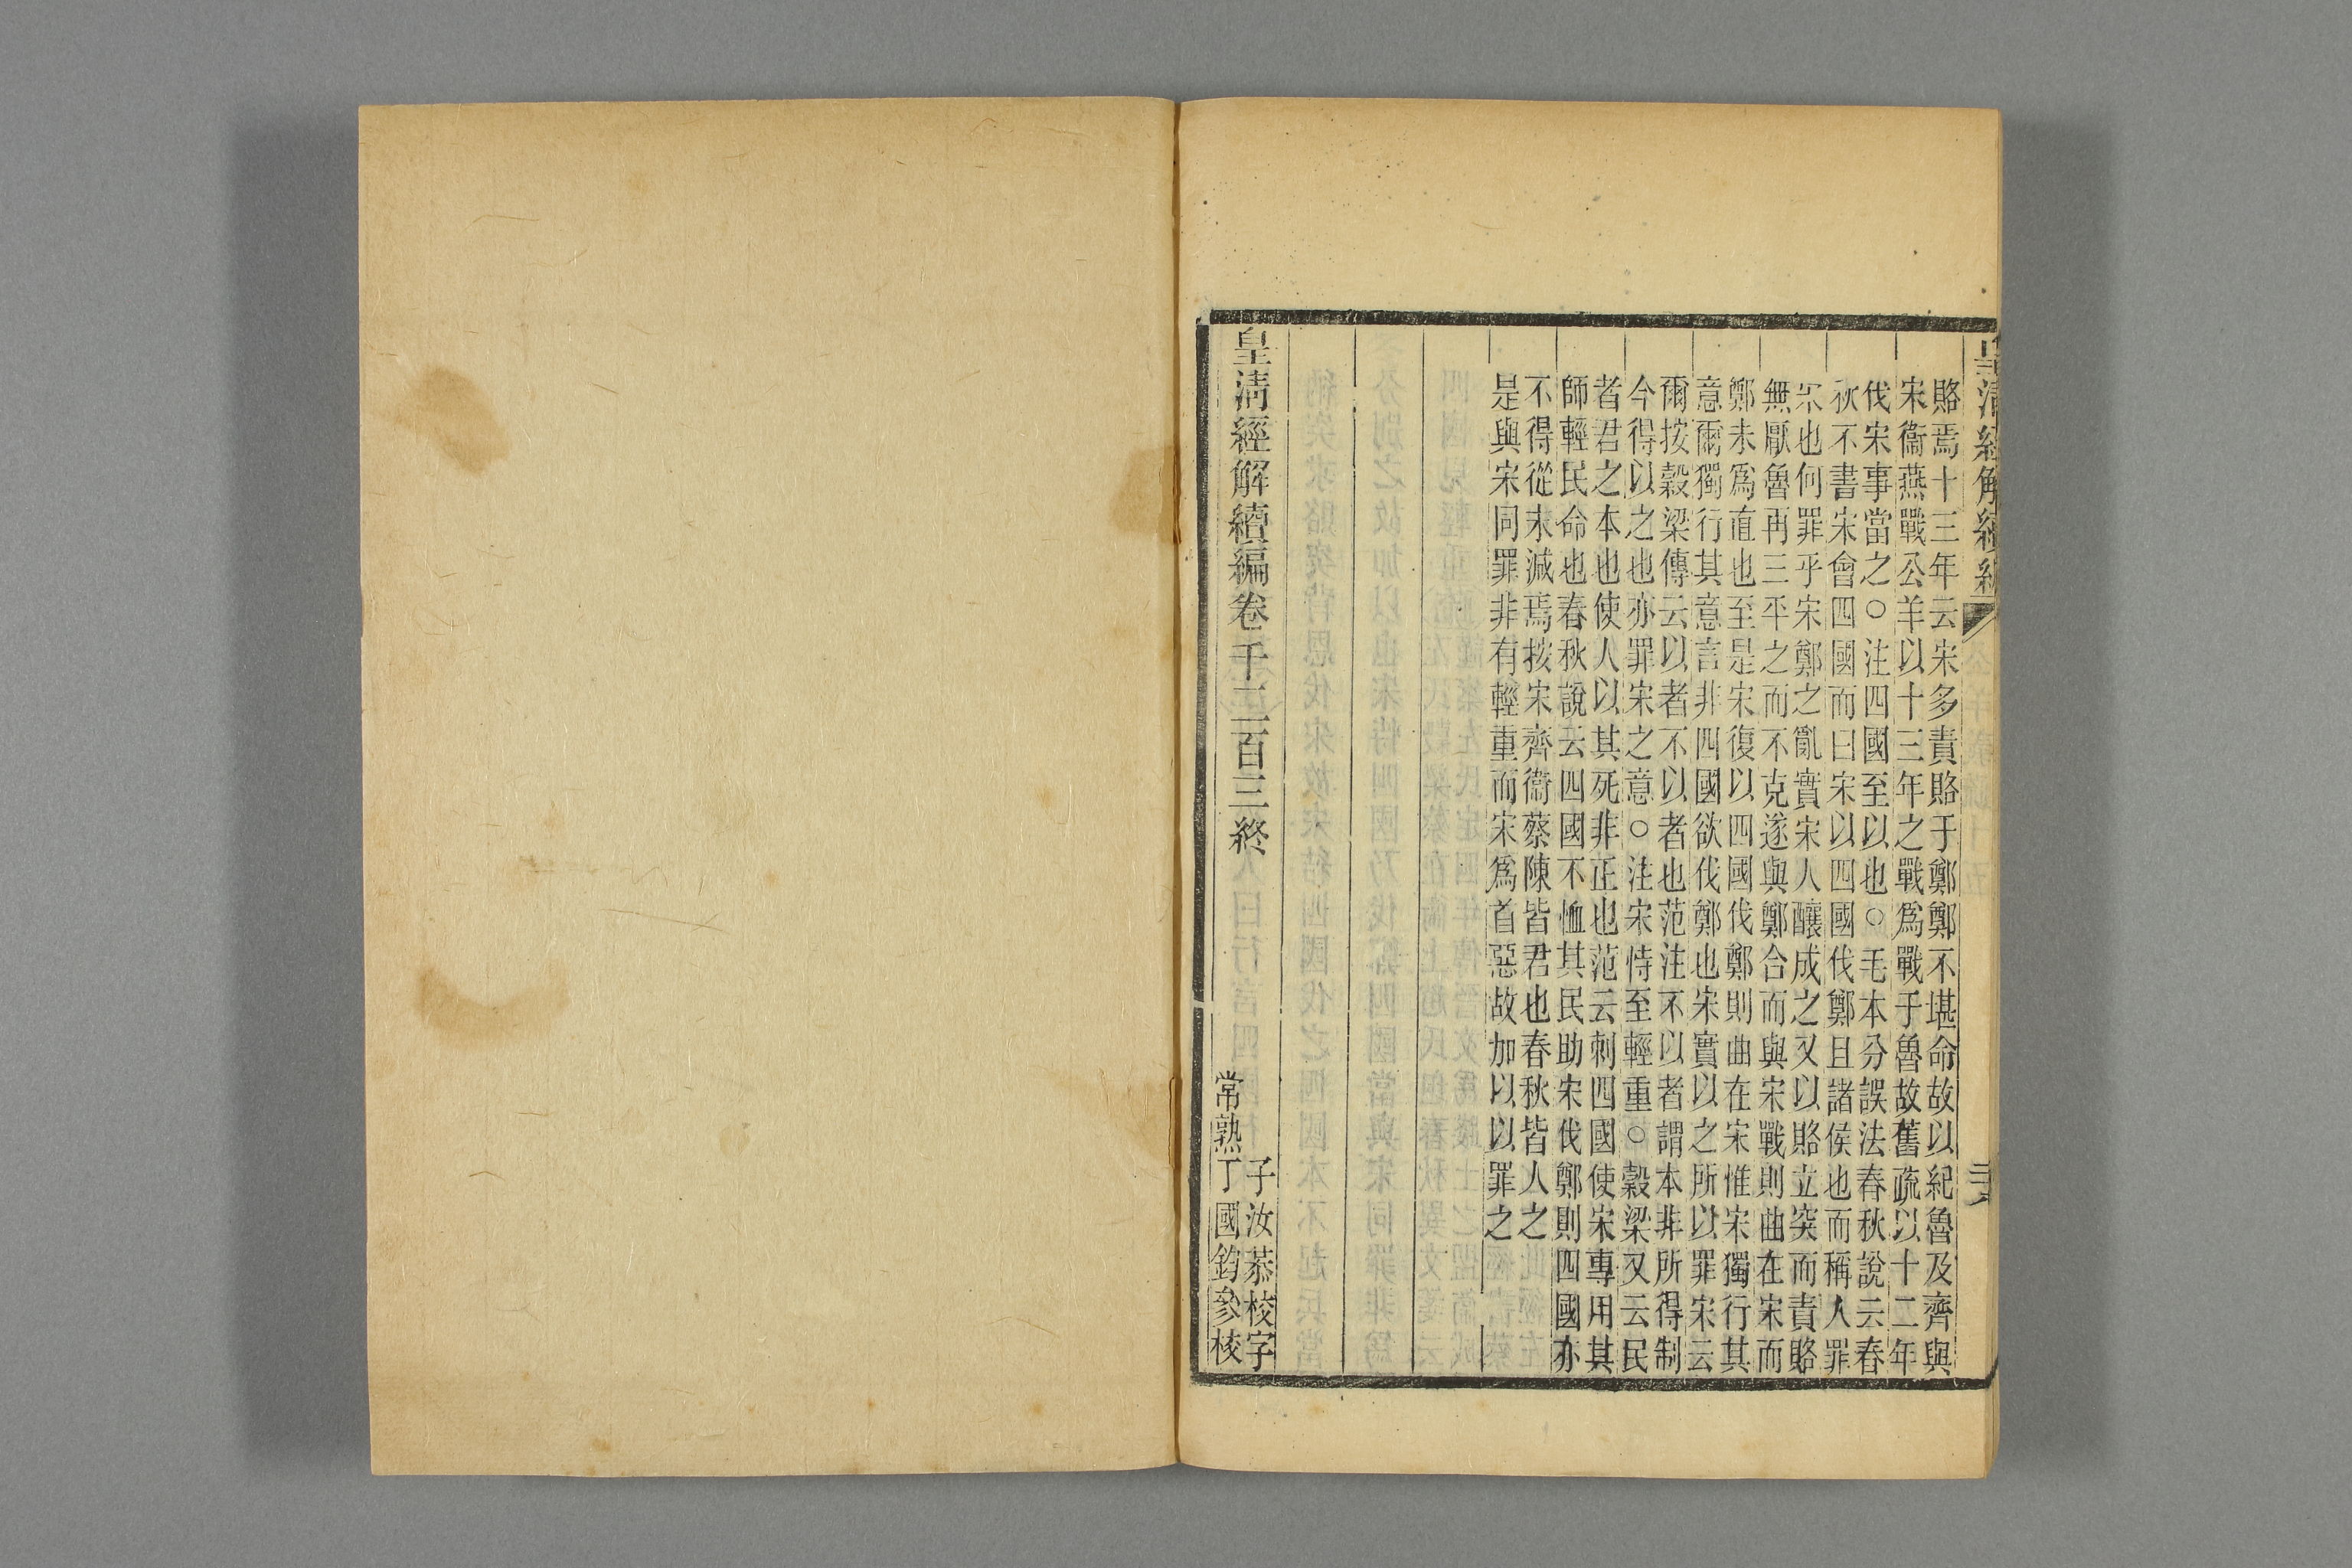 皇清經解續編
賂焉十三年云宋多責賂于鄭鄭不堪命故以紀魯及齊與
宋衞燕戰公羊以十三年之戰爲戰于魯故舊疏以十二年
伐宋事當之○注四國至以也○毛本分誤法春秋說云春
秋不書宋會四國而曰宋以四國伐鄭且諸侯也而稱人罪
宋也何罪乎宋鄭之亂實宋人釀成之又以賂立突而責賂
無厭魯再三平之而不克遂與鄭合而與宋戰則曲在宋而
鄭未爲直也至是宋復以四國伐鄭則曲在宋惟宋獨行其
意爾獨行其意言非四國欲伐鄭也宋實以之所以罪宋云
爾按穀梁傳云以者不以者也范注不以者謂本非所得制
今得以之也亦罪宋之意○注宋恃至輕重○穀梁又云民
者君之本也使人以其死非正也范云刺四國使宋專用其
師輕民命也春秋說云四國不恤其民助宋伐鄭則四國亦
不得從末減焉按宋齊衞蔡陳皆君也春秋皆人之
是與宋同罪非有輕重而宋爲首惡故加以以罪之
皇清經解續編卷千二百三終
子汝恭校字
常熟丁國鈞參校